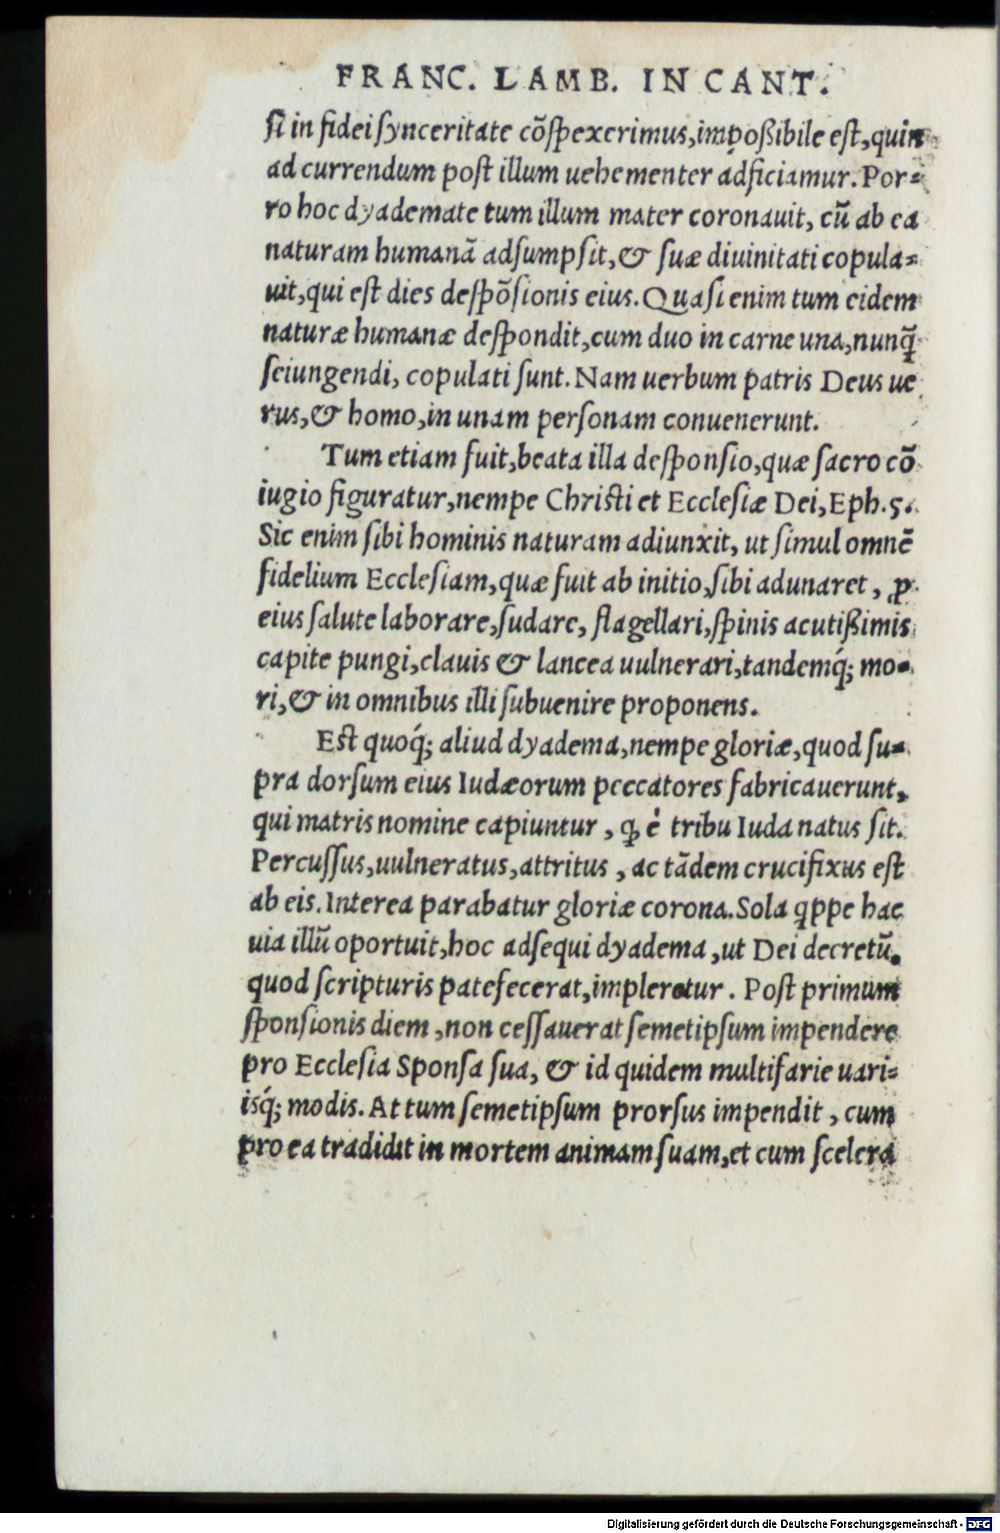 FRANC. LAMB. IN CANT.
ſi in fidei ſynceritate cõſpexerimus, impoßibile eſt, quin
ad currendum poſt illum uehementer adficiamur. Por-
ro hoc dyademate tum illum mater coronauit, cũ ab ea
naturam humanã adſumpſit, & ſuæ diuinitati copula-
uit, qui eſt dies deſpõſionis eius. Quaſi enim tum eidem
naturæ humanæ deſpondit, cum duo in carne una, nunq̃
ſeiungendi, copulati ſunt. Nam uerbum patris Deus ue
rus, & homo, in unam perſonam conuenerunt.
Tum etiam fuit, beata illa deſponſio, quæ ſacro cõ
iugio figuratur, nempe Chriſti et Eccleſiæ Dei, Eph. 5.
Sic enim ſibi hominis naturam adiunxit, ut ſimul omnẽ
fidelium Eccleſiam, quæ fuit ab initio, ſibi adunaret, ꝓ
eius ſalute laborare, ſudare, flagellari, ſpinis acutißimis
capite pungi, clauis & lancea uulnerari, tandemq́; mo-
ri, & in omnibus illi ſubuenire proponens.
Eſt quoq́; aliud dyadema, nempe gloriæ, quod ſu-
pra dorſum eius Iudæorum peccatores fabricauerunt,
qui matris nomine capiuntur, ꝙ è tribu Iuda natus ſit.
Percuſſus, uulneratus, attritus, ac tãdem crucifixus eſt
ab eis. Interea parabatur gloriæ corona. Sola qppe hac
uia illũ oportuit, hoc adſequi dyadema, ut Dei decretũ,
quod ſcripturis patefecerat, impleretur. Poſt primum
ſponſionis diem, non ceſſauerat ſemetipſum impendere
pro Eccleſia Sponſa ſua, & id quidem multifarie uari-
isq́; modis. At tum ſemetipſum prorſus impendit, cum
pro ea tradidit in mortem animam ſuam, et cum ſcelera
Digitalisierung gefördert durch die Deutsche Forschungsgemeinschaft - DFG